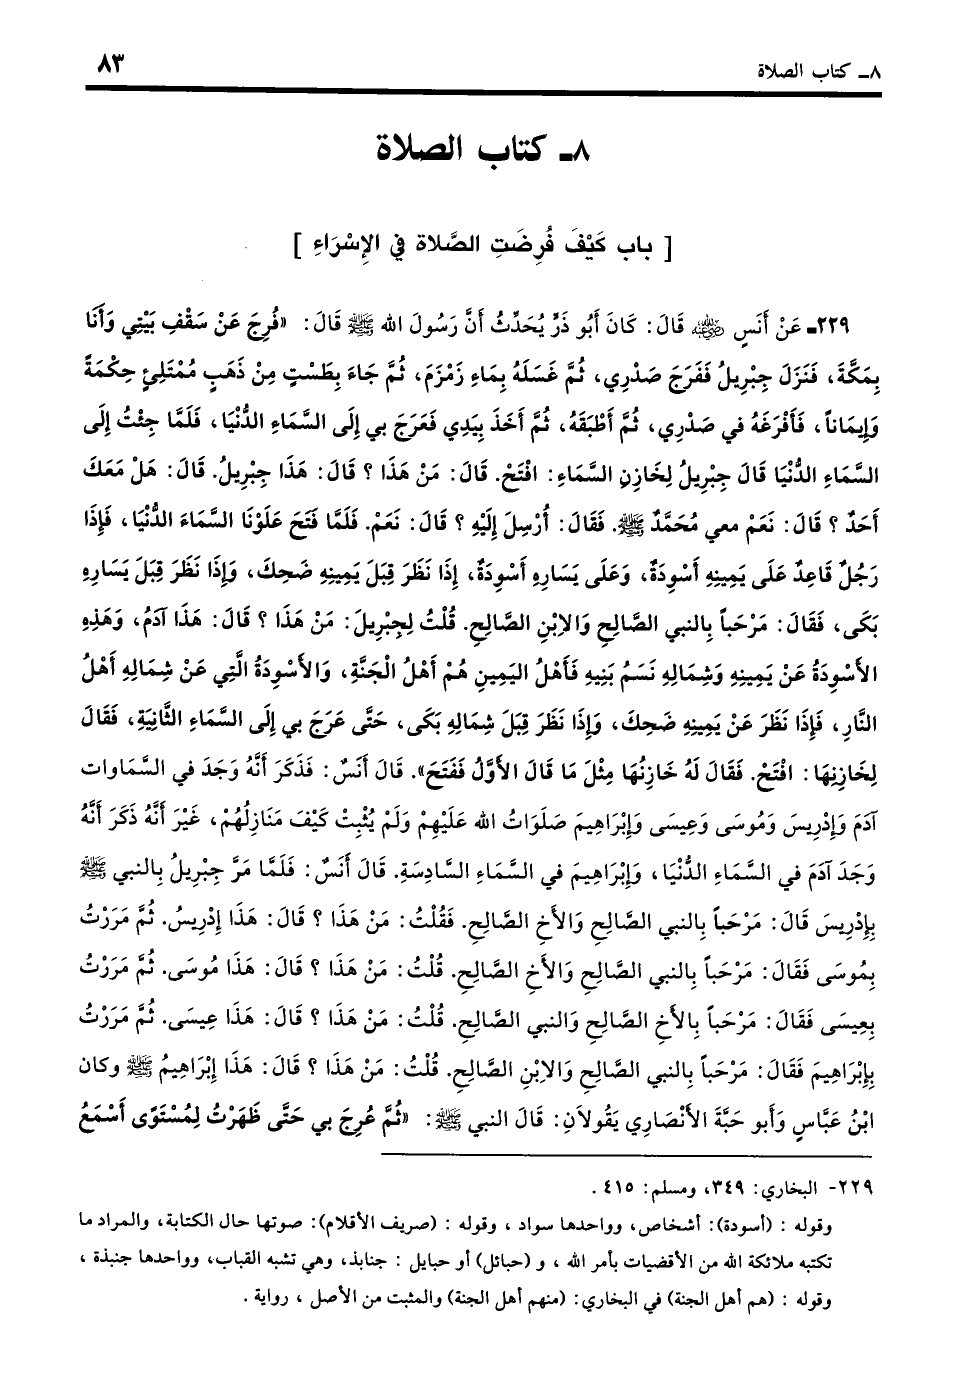 ٨ـ كتاب الصلاة
٨٣
٨ـ كتاب الصلاة
[ باب كَيْفَ فُرِضَتِ الصَّلاة في الإِسْرَاءِ ]
٢٢٩ـ عَنْ أَنَسٍ ﷺ قَالَ: كَانَ أَبُو ذَرٍّ يُحَدِّثُ أَنَّ رَسُولَ الله ﷺ قَالَ: «فُرِجَ عَنْ سَقْفِ بَيْتِي وَأَنَا
بِمَكَّةَ، فَنَزَلَ جِبْرِيلُ فَفَرَجَ صَدْرِي، ثُمَّ غَسَلَهُ بِمَاءِ زَمْزَمَ، ثُمَّ جَاءَ بِطَسْتٍ مِنْ ذَهَبٍ مُمْتَلِئٍ حِكْمَةً
وَإِيمَاناً، فَأَفْرَغَهُ في صَدْرِي، ثُمَّ أَطْبَقَهُ، ثُمَّ أَخَذَ بِيَدِي فَعَرَجَ بي إِلَى السَّمَاءِ الدُّنْيَا، فَلَمَّا جِئْتُ إِلَى
السَّمَاءِ الدُّنْيَا قَالَ جِبْرِيلُ لِخَازِنِ السَّمَاءِ: افْتَحْ. قَالَ: مَنْ هَذَا ؟ قَالَ: هَذَا جِبْرِيلُ. قَالَ: هَلْ مَعَكَ
أَحَدٌ ؟ قَالَ: نَعَمْ معي مُحَمَّدٌ ﷺ. فَقَالَ: أُرْسِلَ إِلَيْهِ ؟ قَالَ: نَعَمْ. فَلَمَّا فَتَحَ عَلَوْنَا السَّمَاءَ الدُّنْيَا، فَإِذَا
رَجُلٌ قَاعِدٌ عَلَى يَمِينِهِ أَسْوِدَةٌ، وَعَلَى يَسَارِهِ أَسْوِدَةٌ، إِذَا نَظَرَ قِبَلَ يَمِينِهِ ضَحِكَ، وَإِذَا نَظَرَ قِبَلَ يَسَارِهِ
بَكَى، فَقَالَ: مَرْحَباً بِالنبي الصَّالِحِ وَالاِبْنِ الصَّالِحِ. قُلْتُ لِجِبْرِيلَ: مَنْ هَذَا ؟ قَالَ: هَذَا آدَمُ، وَهَذِهِ
الأَسْوِدَةُ عَنْ يَمِينِهِ وَشِمَالِهِ نَسَمُ بَنِيهِ فَأَهْلُ اليَمِينِ هُمْ أَهْلُ الْجَنَّةِ، وَالأَسْوِدَةُ الَّتِي عَنْ شِمَالِهِ أَهْلُ
النَّارِ، فَإِذَا نَظَرَ عَنْ يَمِينِهِ ضَحِكَ، وَإِذَا نَظَرَ قِبَلَ شِمَالِهِ بَكَى، حَتَّى عَرَجَ بي إِلَى السَّمَاءِ الثَّانِيَةِ، فَقَالَ
لِخَازِنِهَا: افْتَحْ. فَقَالَ لَهُ خَازِنُهَا مِثْلَ مَا قَالَ الأَوَّلُ فَفَتَحَ». قَالَ أَنَسٌ: فَذَكَرَ أَنَّهُ وَجَدَ في السَّمَاوات
آدَمَ وَإِدْرِيسَ وَمُوسَى وَعِيسَى وَإِبْرَاهِيمَ صَلَوَاتُ الله عَلَيْهِمْ وَلَمْ يُثْبِتْ كَيْفَ مَنَازِلُهُمْ، غَيْرَ أَنَّهُ ذَكَرَ أَنَّهُ
وَجَدَ آدَمَ في السَّمَاءِ الدُّنْيَا، وَإِبْرَاهِيمَ في السَّمَاءِ السَّادِسَةِ. قَالَ أَنَسٌ: فَلَمَّا مَرَّ جِبْرِيلُ بِالنبي ﷺ
بِإِدْرِيسَ قَالَ: مَرْحَباً بِالنبي الصَّالِحِ وَالأَخِ الصَّالِحِ. فَقُلْتُ: مَنْ هَذَا ؟ قَالَ: هَذَا إِدْرِيسُ. ثُمَّ مَرَرْتُ
بِمُوسَى فَقَالَ: مَرْحَباً بِالنبي الصَّالِحِ وَالأَخِ الصَّالِحِ. قُلْتُ: مَنْ هَذَا ؟ قَالَ: هَذَا مُوسَى. ثُمَّ مَرَرْتُ
بِعِيسَى فَقَالَ: مَرْحَباً بِالأَخِ الصَّالِحِ وَالنبي الصَّالِحِ. قُلْتُ: مَنْ هَذَا ؟ قَالَ: هَذَا عِيسَى. ثُمَّ مَرَرْتُ
بِإِبْرَاهِيمَ فَقَالَ: مَرْحَباً بِالنبي الصَّالِحِ وَالاِبْنِ الصَّالِحِ. قُلْتُ: مَنْ هَذَا ؟ قَالَ: هَذَا إِبْرَاهِيمُ ﷺ وكان
ابْنُ عَبَّاسٍ وَأَبو حَبَّةَ الأَنْصَارِي يَقُولاَنِ: قَالَ النبي ﷺ: «ثُمَّ عُرِجَ بي حَتَّى ظَهَرْتُ لِمُسْتَوًى أَسْمَعُ
٢٢٩- البخاري: ٣٤٩، ومسلم: ٤١٥ .
وقوله : (أسودة): أشخاص، وواحدها سواد ، وقوله : (صريف الأقلام): صوتها حال الكتابة، والمراد ما
تكتبه ملائكة الله من الأقضيات بأمر الله ، و (حبائل) أو حبايل : جنابذ، وهي تشبه القباب، وواحدها جنبذة ،
وقوله : (هم أهل الجنة) في البخاري: (منهم أهل الجنة) والمثبت من الأصل ، رواية .